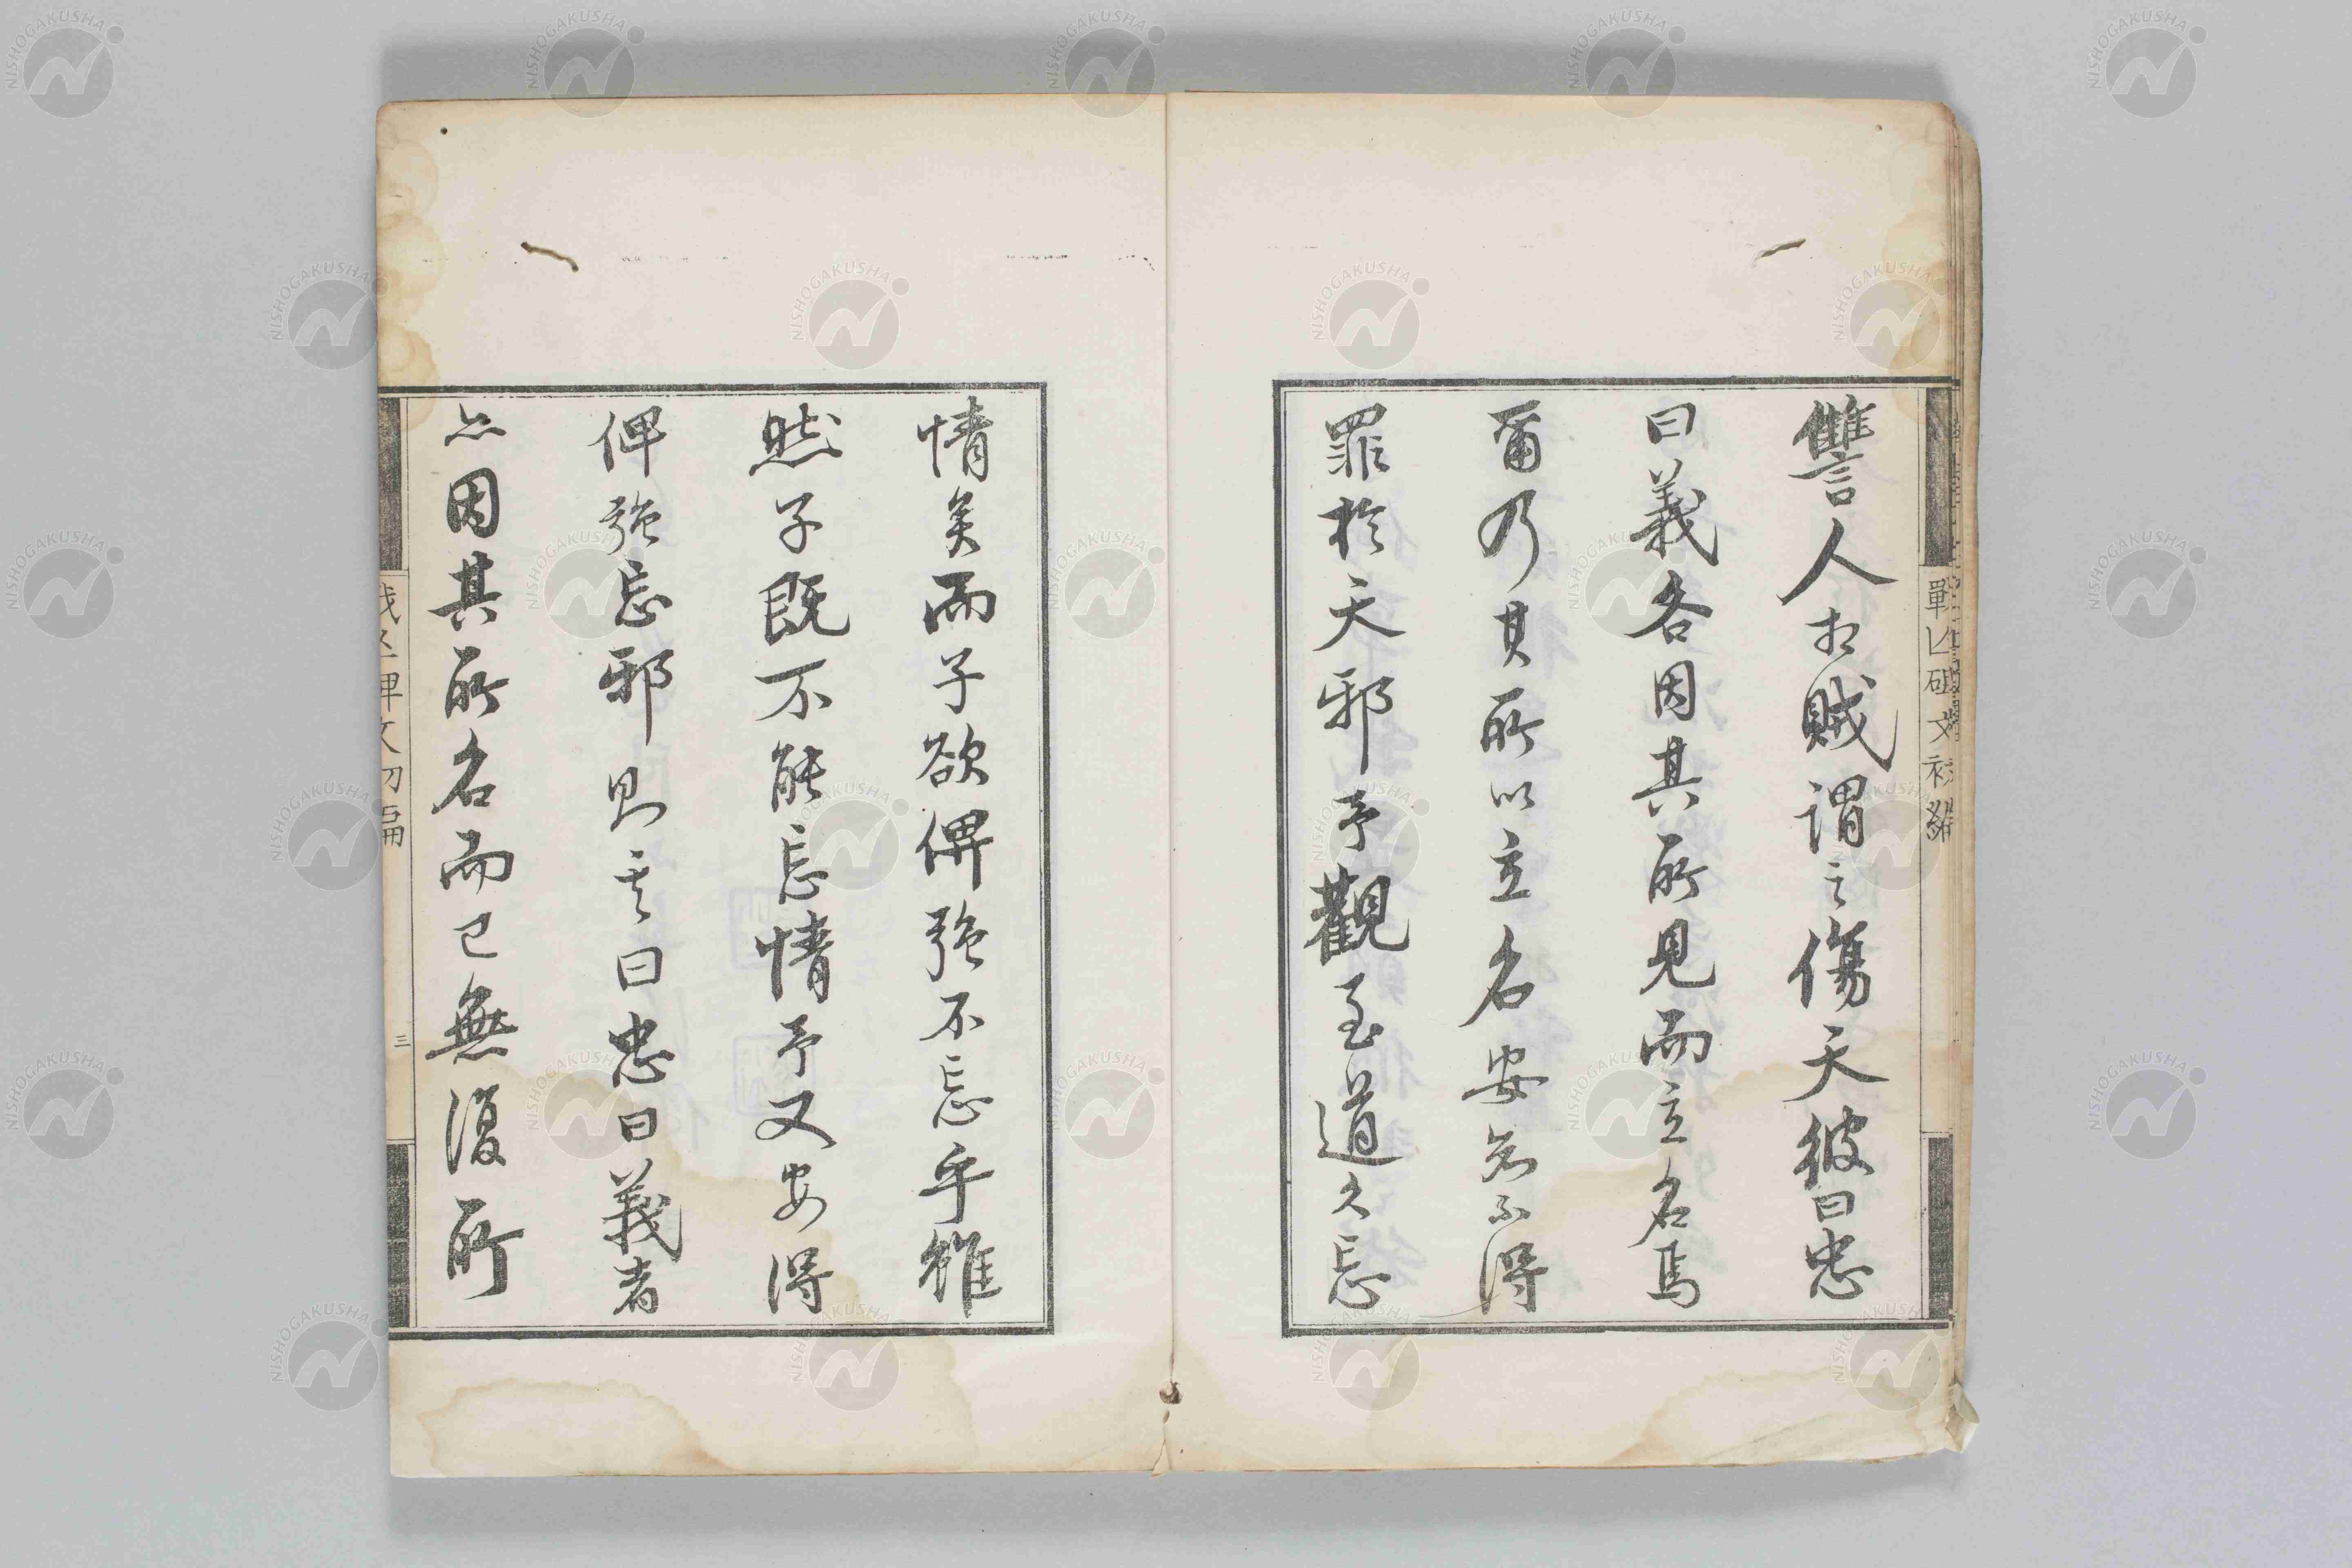 讐人相賊謂之傷天彼曰忠
曰義各因其所見而立名焉
爾乃其所以立名安知不得
罪於天邪予觀至道久忘
情矣而子欲俾強不忘乎雖
然子既不能忘情予又安得
俾強忘邪則其曰忠曰義者
亦因其所名而已無復所
戰亡碑文初編
三
NISHOGAKUSHA